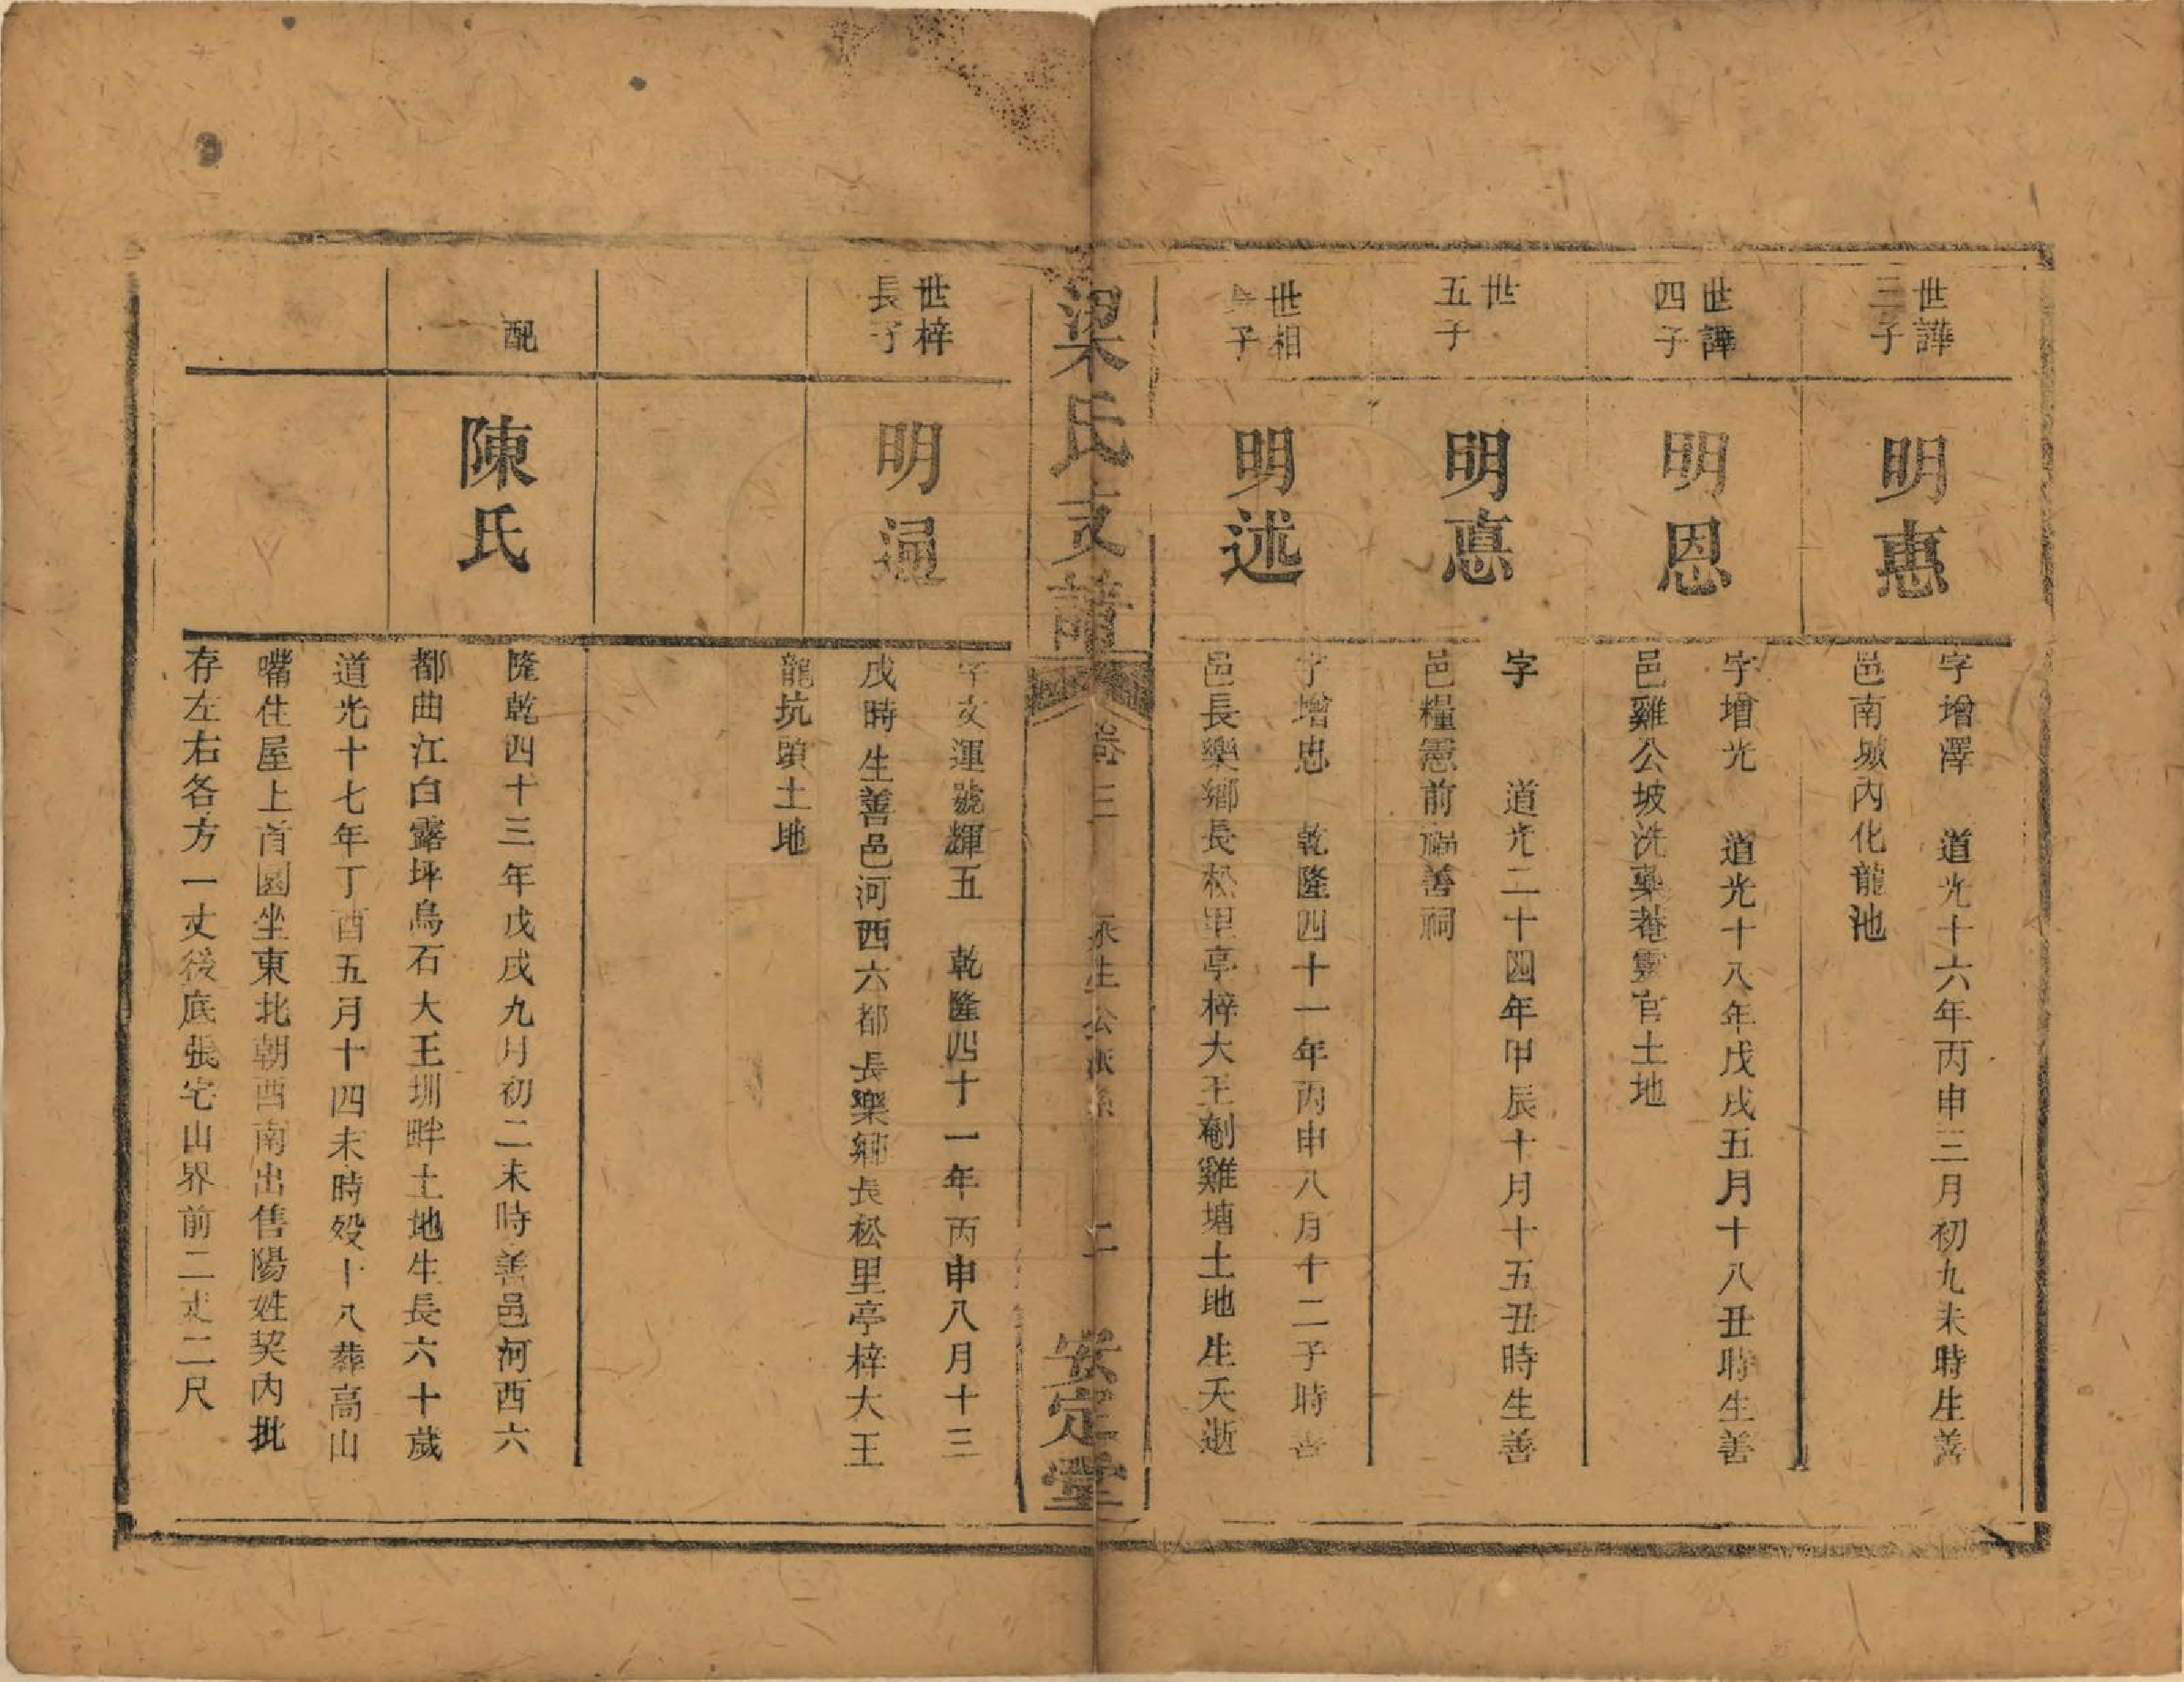 世譁
三子
明惠
字增澤 道光十六年丙申三月初九未時生善
邑南城內化龍池
世譁
四子
明恩
字增光 道光十八年戊戌五月十八丑時生善
邑雞公坡洗藥菴靈官土地
世
五子
明悳
字 道光二十四年甲辰十月十五丑時生善
邑糧憲前福善祠
世相
子
明述
字增忠 乾隆四十一年丙申八月十二子時善
邑長樂鄉長松里亭梓大王劁雞塘土地生夭逝
梁氏支譜
卷三
永生公派系
二
安定堂
世梓
長子
明通
字文運號輝五 乾隆四十一年丙申八月十三
戊時生善邑河西六都長樂鄉長松里亭梓大王
龍抗頭土地
配
陳氏
隆乾四十三年戊戌九月初二未時善邑河西六
都曲江白露坪烏石大王圳畔土地生長六十歲
道光十七年丁酉五月十四未時歿十八葬高山
嘴住屋上首園坐東北朝酉南出售陽姓契內批
存左右各方一丈後底張宅山界前二丈二尺